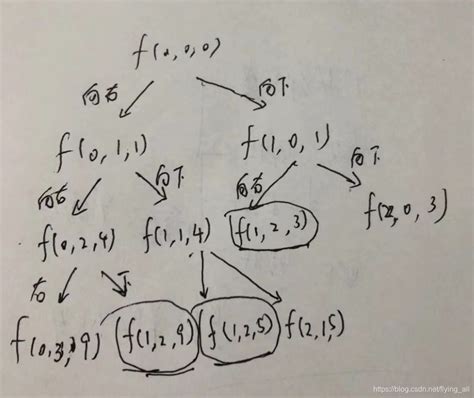 f(0,0,0)
向右 向下
f(0,1,1) f(1,0,1)
向右 向下 向右 向下
f(0,2,4) f(1,1,4) f(1,2,3) f(2,0,3)
右 下
f(0,3,9) f(1,2,9) f(1,2,5) f(2,1,5)
https://blog.csdn.net/flying_all